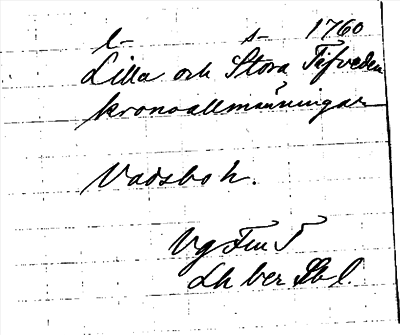 l- s- 1760
Lilla och Stora Tifveden
kronoallmänningar
Vadsbo h.
Vg Fm 5
Lh ber Sbl.